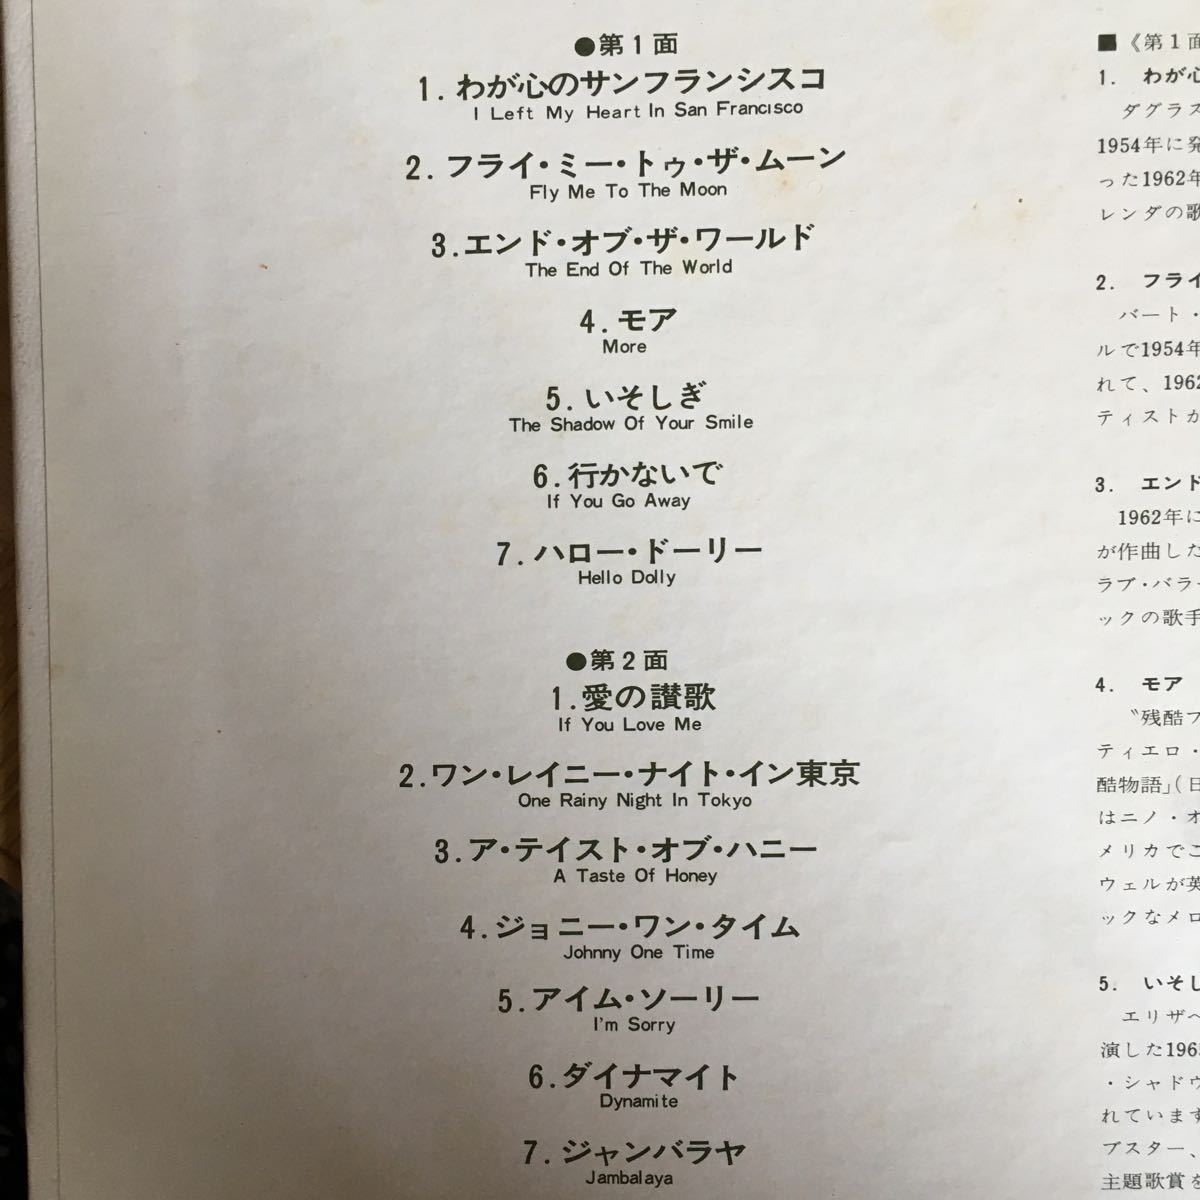 ●第1面
1.わが心のサンフランシスコ
I Left My Heart In San Francisco
2.フライ・ミー・トゥ・ザ・ムーン
Fly Me To The Moon
3.エンド・オブ・ザ・ワールド
The End Of The World
4.モア
More
5.いそしぎ
The Shadow Of Your Smile
6.行かないで
If You Go Away
7.ハロー・ドーリー
Hello Dolly
●第2面
1.愛の讃歌
If You Love Me
2.ワン・レイニー・ナイト・イン東京
One Rainy Night In Tokyo
3.ア・テイスト・オブ・ハニー
A Taste Of Honey
4.ジョニー・ワン・タイム
Johnny One Time
5.アイム・ソーリー
I'm Sorry
6.ダイナマイト
Dynamite
7.ジャンバラヤ
Jambalaya
■《第1面
1. わが心
ダグラス
1954年に発
った1962年
レンダの歌
2. フライ
バート・
ルで1954年
れて、1962
ティストか
3. エンド
1962年に
が作曲した
ラブ・バラ
ックの歌手
4. モア
〝残酷フ
ティエロ・
酷物語」(日
はニノ・オ
メリカでこ
ウェルが英
ックなメロ
5. いそし
エリザベ
演した196
・シャドウ
れています
ブスター、
主題歌賞を